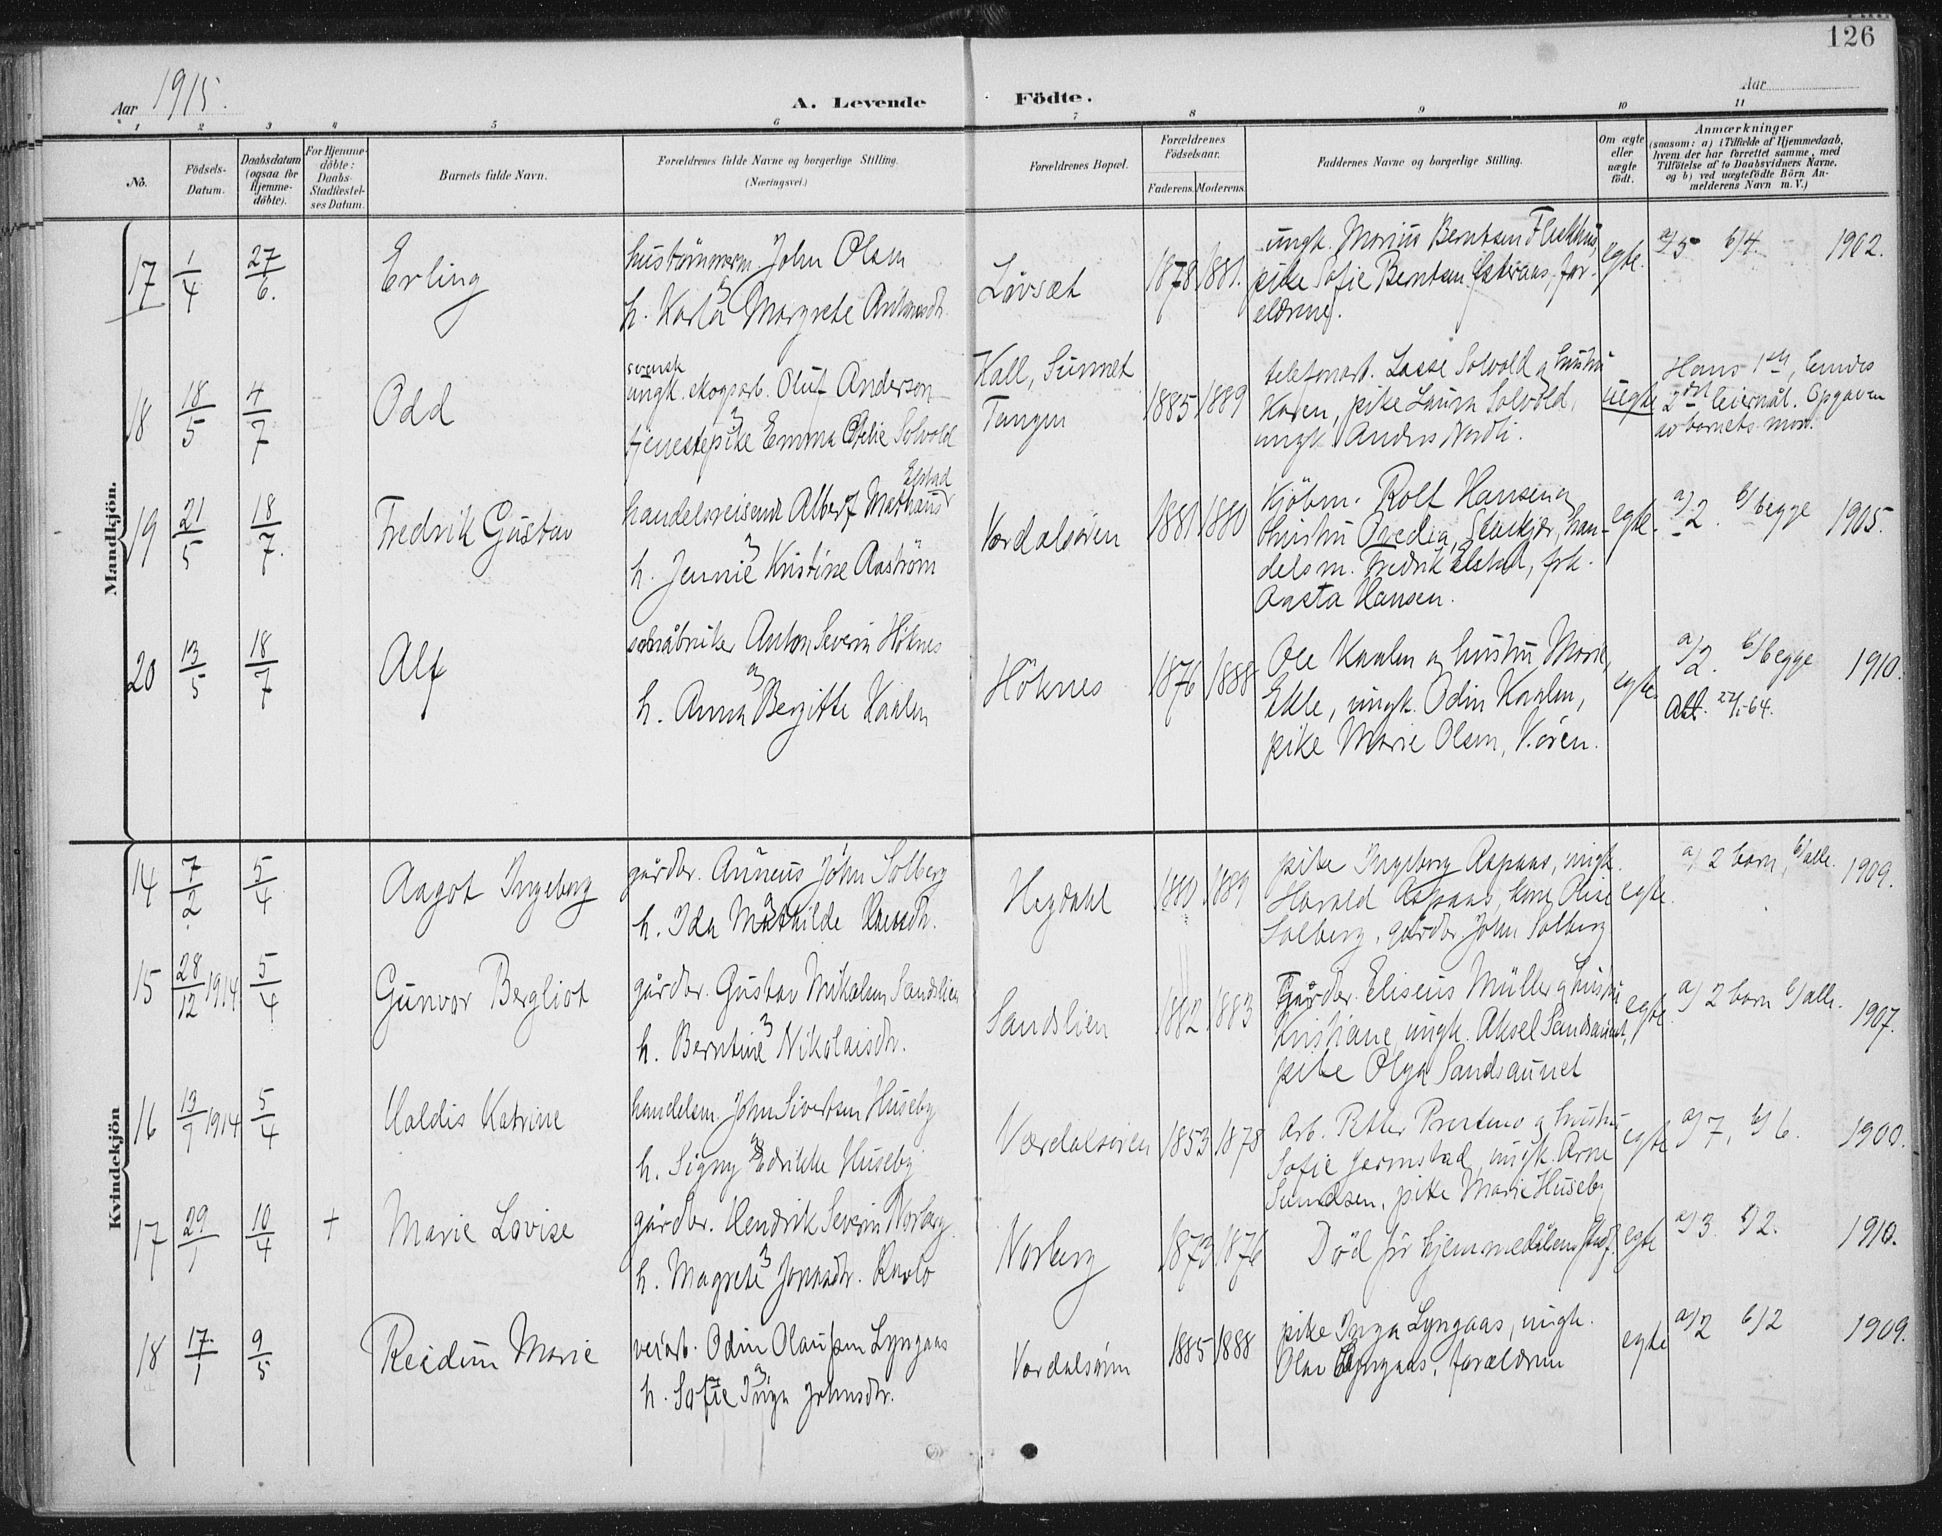 126
Aar 1915.
A. Levende Födte.
Aar
1 2 3 4 5 6 7 8 9 10 11
No.
Födsels-Datum.
Daabsdatum (ogsaa for Hjemme-döbte).
For Hjemme-döbte: Daabs-Stadfæstel-ses Datum.
Barnets fulde Navn.
Forældrenes fulde Navne og borgerlige Stilling. (Næringsvei.)
Forældrenes Bopæl.
Forældrenes Födselsaar.
Faderens. Moderens.
Faddernes Navne og borgerlige Stilling.
Om ægte eller uægte födt.
Anmærkninger
(saasom: a) i Tilfælde af Hjemmedaab, hvem der har forrettet samme, med Tilföielse af to Daabsvidners Navne, og b) ved uægtefödte Börn An-melderens Navn m. V.)
Mandkjön.
17 1/4 27/6. Erling
hustömmerm. John Olsen
h. Karla Margrete Antonsdr.
Lövsæt 1878 1881.
ungk. Marius Berntsen
pike Sofie Berntsen for-
eldrene.
egte. a/5 b/4. 1902.
18 18/5 4/7 Odd
svensk
ungk. skogsarb. Olut Anderson
tjenestepike Emma Otelie Solvold
Kall, Sunnet
Tangen 1885 1889
telefonarb. Lasse Solvold og hustru
Karen, pike Laura Solvold,
ungk. Anders Nordli.
uegte
Hans 1ste, hendes
2det leiermål. Opgaven
av barnets mor.
19 21/5 18/7. Fredrik Gustav
handelsreisende Albert Mathæus
Elstad
h. Jennie Kristine Aaström
Værdalsören 1881 1880
Kjöbm. Rolf Hansen og
hustru Ovedia, Stenkjær, han-
delsm. Fredrik Elstad, frk.
Aasta Hansen.
egte. a/2. b/begge 1905.
20 13/5 18/7 Alf
Anton Severin Höknes
h. Anna Bergitte Kaalen
Höknes 1876 1888
Ole Kaalen og hustru Marie,
Ekle, ungk. Odin Kaalen,
pike Marie Olsen, V.ören.
egte a/2. b/begge 1910.
Att. 22/1-64.
Kvindekjön
14 7/2 5/4 Aagot Ingeborg
gårdbr. Anneus John Solberg
h. Ida Mathilde
Hegdahl 1880 1889
pike Ingeborg Aspaas, ungk.
Harald Aspaas, kone
Solberg, gårdbr John Solberg
egte. a/2 barn, b/alle. 1909.
15 28/12 1914 5/4 Gunvor Bergliot
gårdbr. Gustav Mikalsen Sandslien
h. Berntine Nikolaisdr.
Sandslien 1882 1883
Gårdbr. Eliseus Müller og hustru
Kristiane, ungk. Aksel Sandsaunet,
pike Olga Sandsaunet
egte. a/2 barn b/alle. 1907.
16 13/7 1914 5/4 Valdis Katrine
handelsm. John Sivertsen Huseby
h. Signy Huseby
Værdalsören 1853 1878
Arb. Petter og hustru
Sofie Jermstad, ungk. Arne
pike Marie Huseby
egte a/7, b/6. 1900.
17 29/1 10/4 + Marie Lovise
gårdbr. Hendrik Severin Norberg
h. Magrete Jonasdr.
Norberg 1873 1876
Död för hjemmedåbens stadf.
egte a/3 b/2. 1910.
18 17/1 9/5 Reidun Marie
veiarb. Odin Olaussen Lyngaas
h. Sofie Inga Johnsdtr.
Værdalsören 1885 1888
pike Inga Lyngaas, ungk.
Olav Lyngaas, forældrene
egte a/2 b/2 1909.